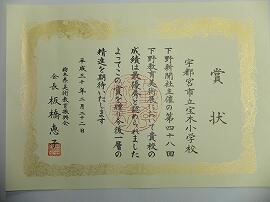 賞状
宇都宮市立宝木小学校
下野新聞社主催の第四十八回
下野教育美術展において貴校の
成績は最優秀と認められました
よってこの賞を贈り今後一層の
精進を期待いたします
平成三十年二月二十二日
栃木県美術教育振興会
会長 板橋惠子